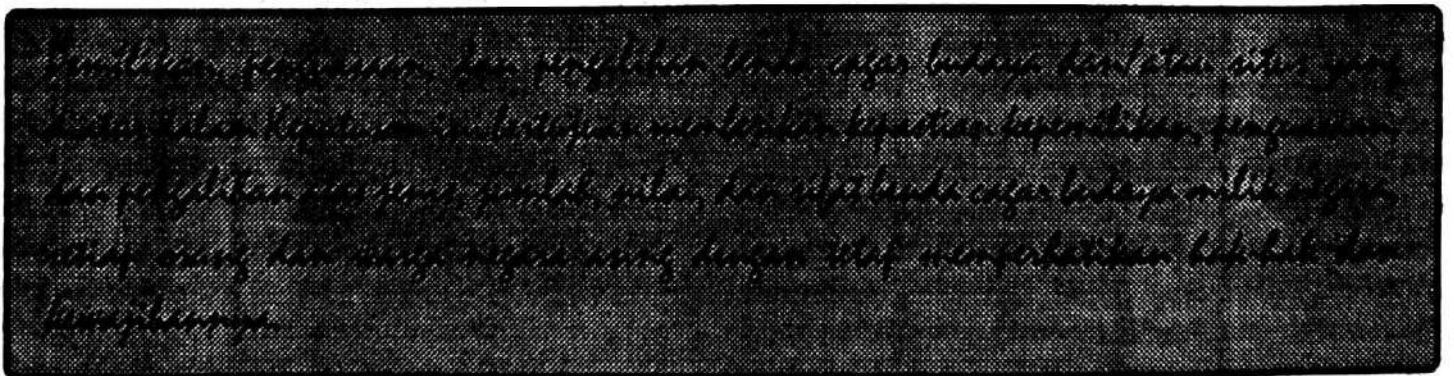 Pemilikan, penguasaan, dan pengalihan benda cagar budaya dan/atau situs yang
diatur dalam Keputusan ini bertujuan memberikan kepastian kepemilikan, penguasaan,
dan pengalihan mengenai jumlah, nilai, dan sifat benda cagar budaya milik negara,
setiap orang dan warga negara asing dengan tetap memperhatikan hak-hak dan
kewajibannya.